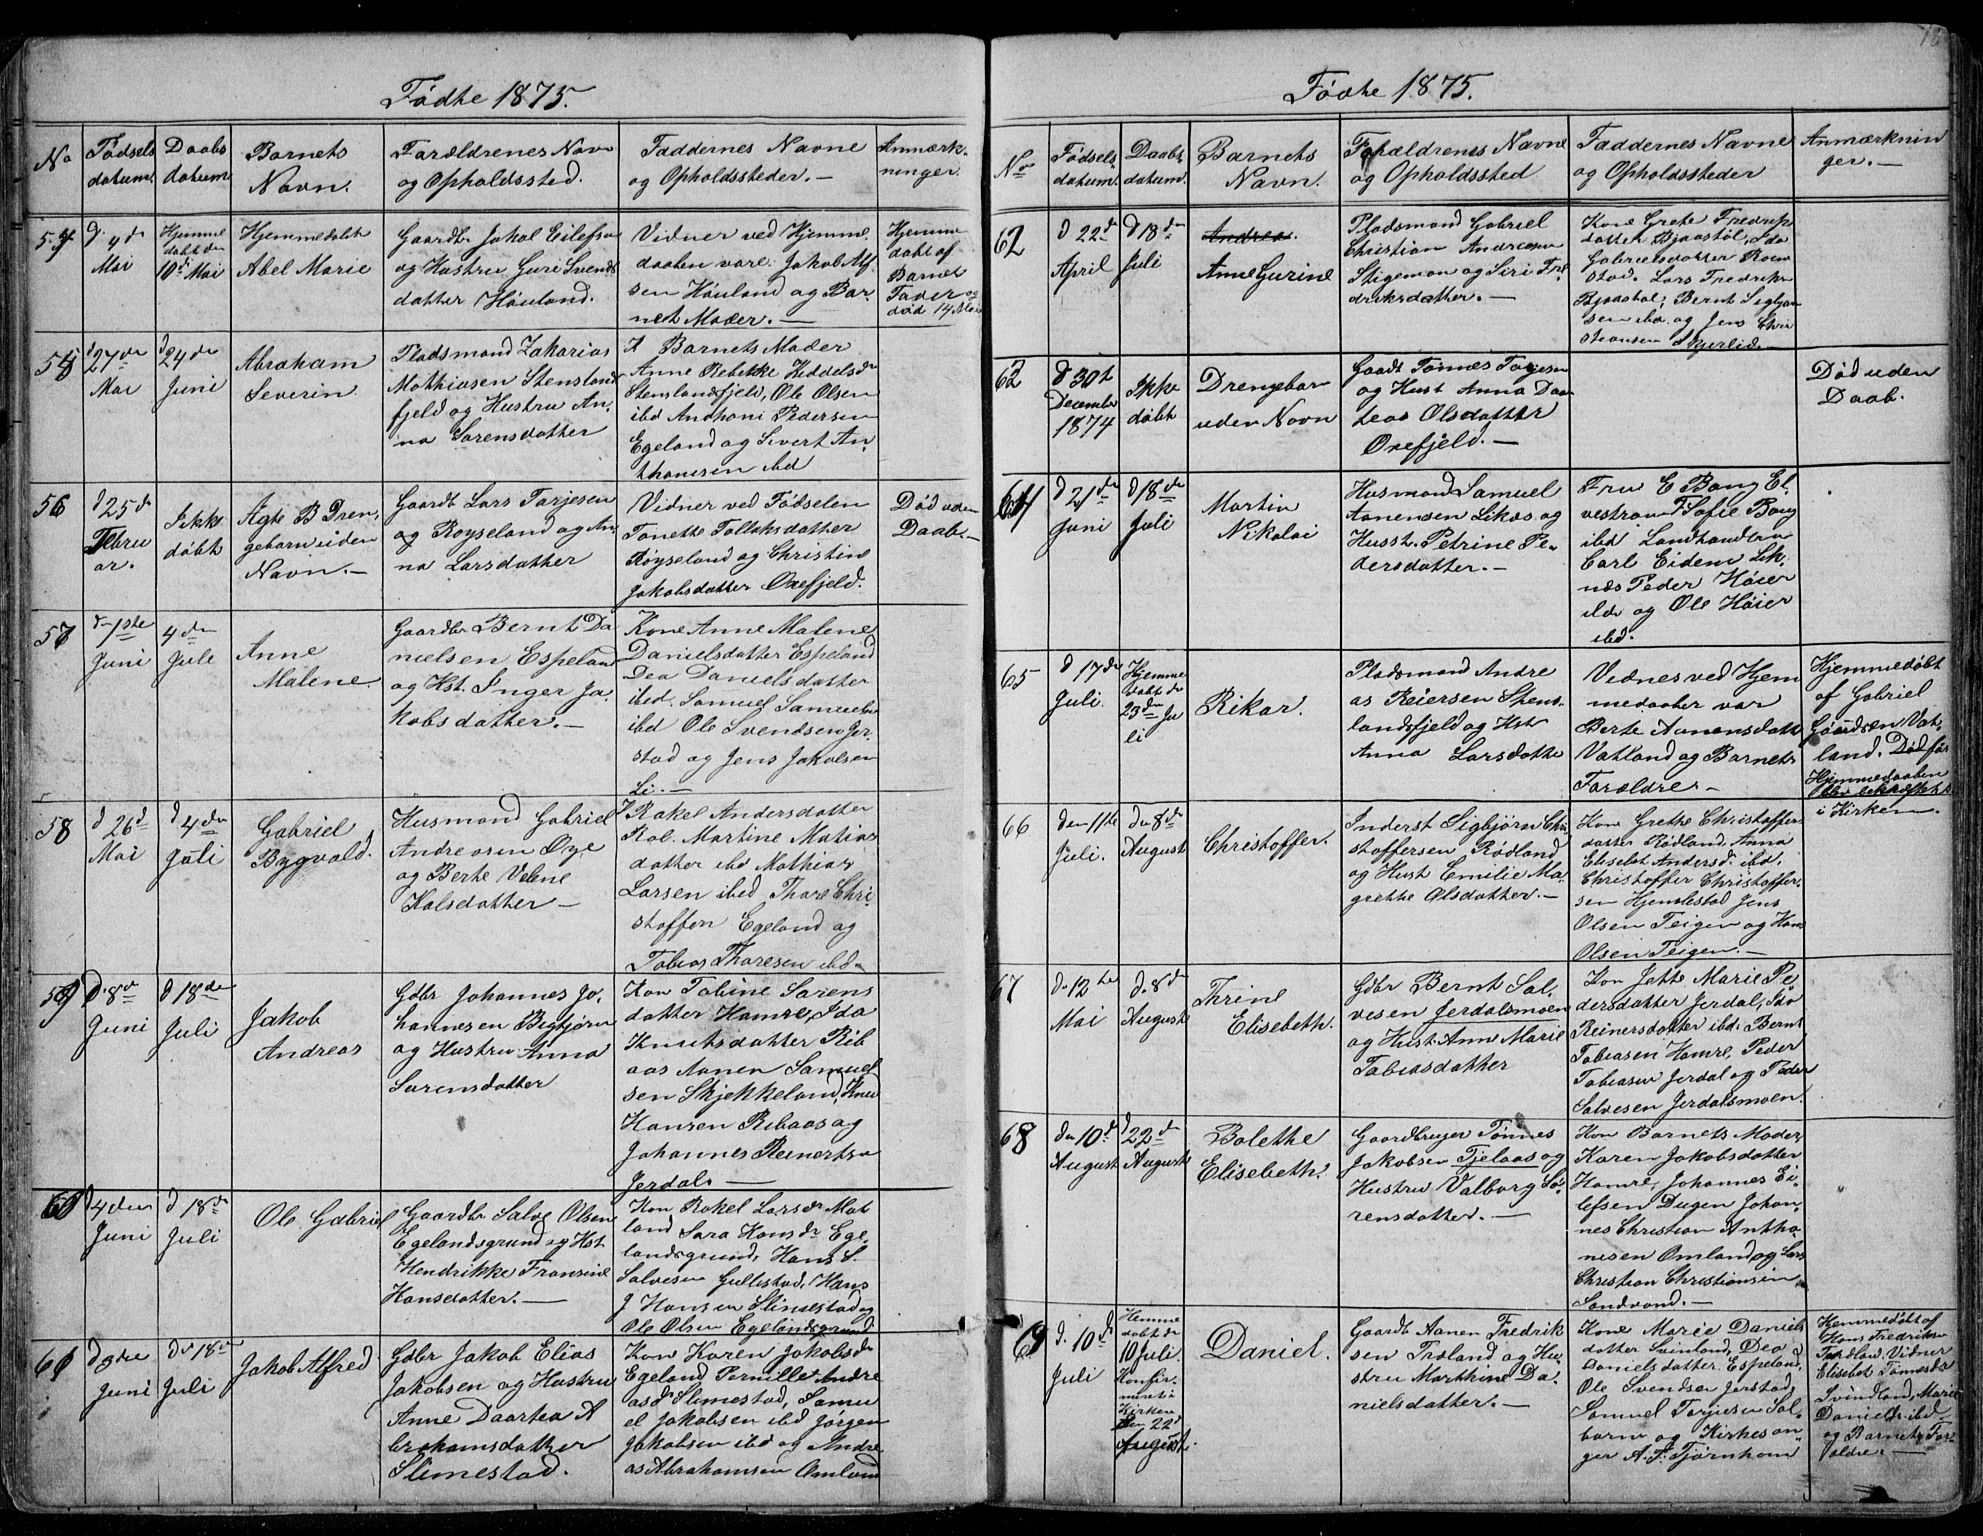 Fødte 1875.
No
Fødsels
datum.
Daabs
datum
Barnets
Navn.
Forældrenes Navn
og Opholdssted.
Faddernes Navne
og Opholdssteder. —
Anmærk-
ninger.
54
d. 4de
Mai
Hjemme
døbt den
10d Mai
Hjemmedøbt
Abel Marie
Gaardbr Jakob Eilefsen
og Hustru Guri Svends
datter Høiland.
Vidner ved Hjemme
daaben vare: Jakob
sen Høiland og Bar-
nets Moder. —
Hjemme
døbt af
Barnets
Fader og
død 14 Mai
55
d 27de
Mai
d 24de
Juni
Abraham
Severin.
Pladsmand Zakarias
Mathiasen Stensland
fjeld og Hustru An-
na Sørensdatter
Barnets Moder
Anne Rebekke Kiddelsdr
Stenslandsfjeld, Ole Olsen
ibd Anthoni Pedersen
Egeland og Sivert An-
thonisen ibd
56
d 25de
Febru
ar.
Ikke
døbt
Ægte B Dren-
gebarn uden
Navn. —
Gaardb Lars Tarjesen
og Røyseland og An-
na Larsdatter
Vidner ved Fødselen
Tonette Tollaksdatter
Røyseland og Christine
Jakobsdatter Oxefjeld.
Død uden
Daab. —
57
den 1ste
Juni
4de
Jule
Anne
Malene.
Gaardbr Bernt Da
nielsen Espeland
og Hst. Inger Ja
kobsdatter. —
Kone Anne Malene
Danielsdatter Espeland
Dea Danielsdatter
ibd. Samuel Samuelsen
ibd Ole Svendsen Jer
stad og Jens Jakobsen
Li. —
58
d 26d
Mai
d 4de
Juli
Gabriel
Bygvald.
Husmand Gabriel
Andreasen Øye
og Berte Velene
Kalsdatter —
K Rakel Andersdatter
Martine Matias
datter ibd Mathias
Larsen ibd Thore Chri-
stoffersen Egeland og
Tobias Thoresen ibd
59
D. 8de
Juni
d 18de
Juli
Jakob
Andreas
Gdbr Johannes Jo-
hannesen Bigbjørn
og Hustru Anna
Sørensdatter
Kon Tobine Sørens
datter Hamre, Ida
Knutsdatter Rib
aas Aanen Samuel
sen Skjekkeland, Knu
Hansen Ribaas og
Johannes Reinertsen
Jerdal. —
60
d 4den
Juni
d 18de
Juli
Ole Gabriel
Gaardbr Salve Olsen
Egelandsgrund og Hst
Hendrikke Fransine
Hansdatter. —
Kon Rakel Larsdr Mat
land Sara Hansdr Ege-
landsgrund, Hans S.
Salvesen Gullestad, Hans
J Hansen Slimestad og
Ole Olsen Egelandsgrund
61
Juni
d. 18de
Juli
Jakob Alfred
Gdbr Jakob Elias
Jakobsen og Hustru
Anne Daartea A
brahamsdatter
Slimestad.
Kon Karen Jakobsdr
Egeland Pernille Andre
asdr Slimestad, Samu
el Jakobsen ibd Jørgen
Jakobsen ibd og Andre
as Abrahamsen Omland
Fødte 1875.
No
Fødsels-
datum.
Daabs
datum.
Barnets
Navn.
Forældrenes Navne
og Opholdssted
Faddernes Navne
og Opholdssteder
Anmærknin
ger. —
62
d 22de
April
d 18de
Juli
Andrea.
Anne Gurine
Pladsmand Gabriel
Christian Andreasen
Stigeman og Siri Fre
driksdatter. —
Kone Grete Fredrik
datter Bjaastøl, Ida
Gabrielsdatter Roun
stad. Lars Fredriks
Bjaastøl, Bernt Sigbjørn
sen ibd. og Jens Chri
stiansen Skjerlid. —
63
d 30t
December
1874
Ikke
døbt
Drengebarn
uden Navn
Gaardb Tønnes Tarjesen
og Hust Anna Daar
teas Olsdatter
Oxefjeld. —
Død uden
Daab.
64
d 21de
Juni
d 18de
Juli
Martin
Nikolai
Husmand Samuel
Aanensen Liknes og
Hustr. Petrine Pe-
dersdatter. —
Fru E Bang El-
vestrøm F Sofie Bang
ibd Landhandler
Carl Eidem Lik-
næs Peder Høier
ibd og Ole Høier
ibd.
65
d 17de
Juli.
Hjemme
døbt de
23de Ju
li
Rikar.
Pladsmand Andre
as Reiersen Stens-
landsfjeld og Hst
Anna Larsdatte
Vidnes ved Hjem
medaaben var
Berte Aanensdatt
Vatland og Barnets
Forældre —
Hjemmedøbt
af Gabriel
Vat-
land. Død før
Hjemmedaaben
blev bekræftet
i Kirken —
66
den 11te
Juli.
d 8de
August
Christoffer.
Inderst Sigbjørn Chri
stoffersen Rødland
og Hust Emilie Ma-
grethe Olsdatter. —
Kon Grethe Christoffer
datter Rødland, Anna
Elisebet Andersd. ibd,
Christoffer Christoffer-
sen Hjemlestad Jens
Olsen Teigen og Hans
Olsen Teigen. —
67
d. 12te
Mai
d. 8de
August
Thrine
Elisebeth.
Gdbr Bernt Sal-
vesen Jerdalsmoen
og Hust. Anne Marie
Tobiasdatter
Kon Jette Marie Pe-
dersdatter Jerdal, Ida
Reinersdatter ibd. Bernt
Tobiasen Hamre, Peder
Tobiasen Jerdal og Peder
Salvesen Jerdalsmoen.
68
den 10d
August
d 22de
August
Bolethe
Elisebeth.
Gaardbruger Tønnes
Jakobsen Tjelaas og
Hustru Valborg Sø-
rensdatter. —
Kon Barnets Moder
Karen Jakobsdatter
Hamre, Johannes Ei-
lefsen Dugen Johan-
nes Christian Antho-
nisen Omland, og Lars
Christian Christiansen
Sandvand. —
69
d. 10de
Juli
Hemme
døbt de
10 Juli.
Konfir-
meret i
Kirken
den 22d
August.
Daniel.
Gaardb Aanen Fredrik
sen Trøland og Hu-
stru Marthine Da-
nielsdatter. —
Kone Marie Daniels
datter Svinland, Dea
Danielsdatter Espeland,
Ole Svendsen Jerstad,
Samuel Tarjesen Sal-
barm og Kirkesan-
ger A. F. Tjørnhom
Hemmedøbt af
Hans Fredriksen
Vidner
Elisebet Tønnesdr
Svindland, Marie
Danielsd. ibd
og Barnets For-
ældre. —